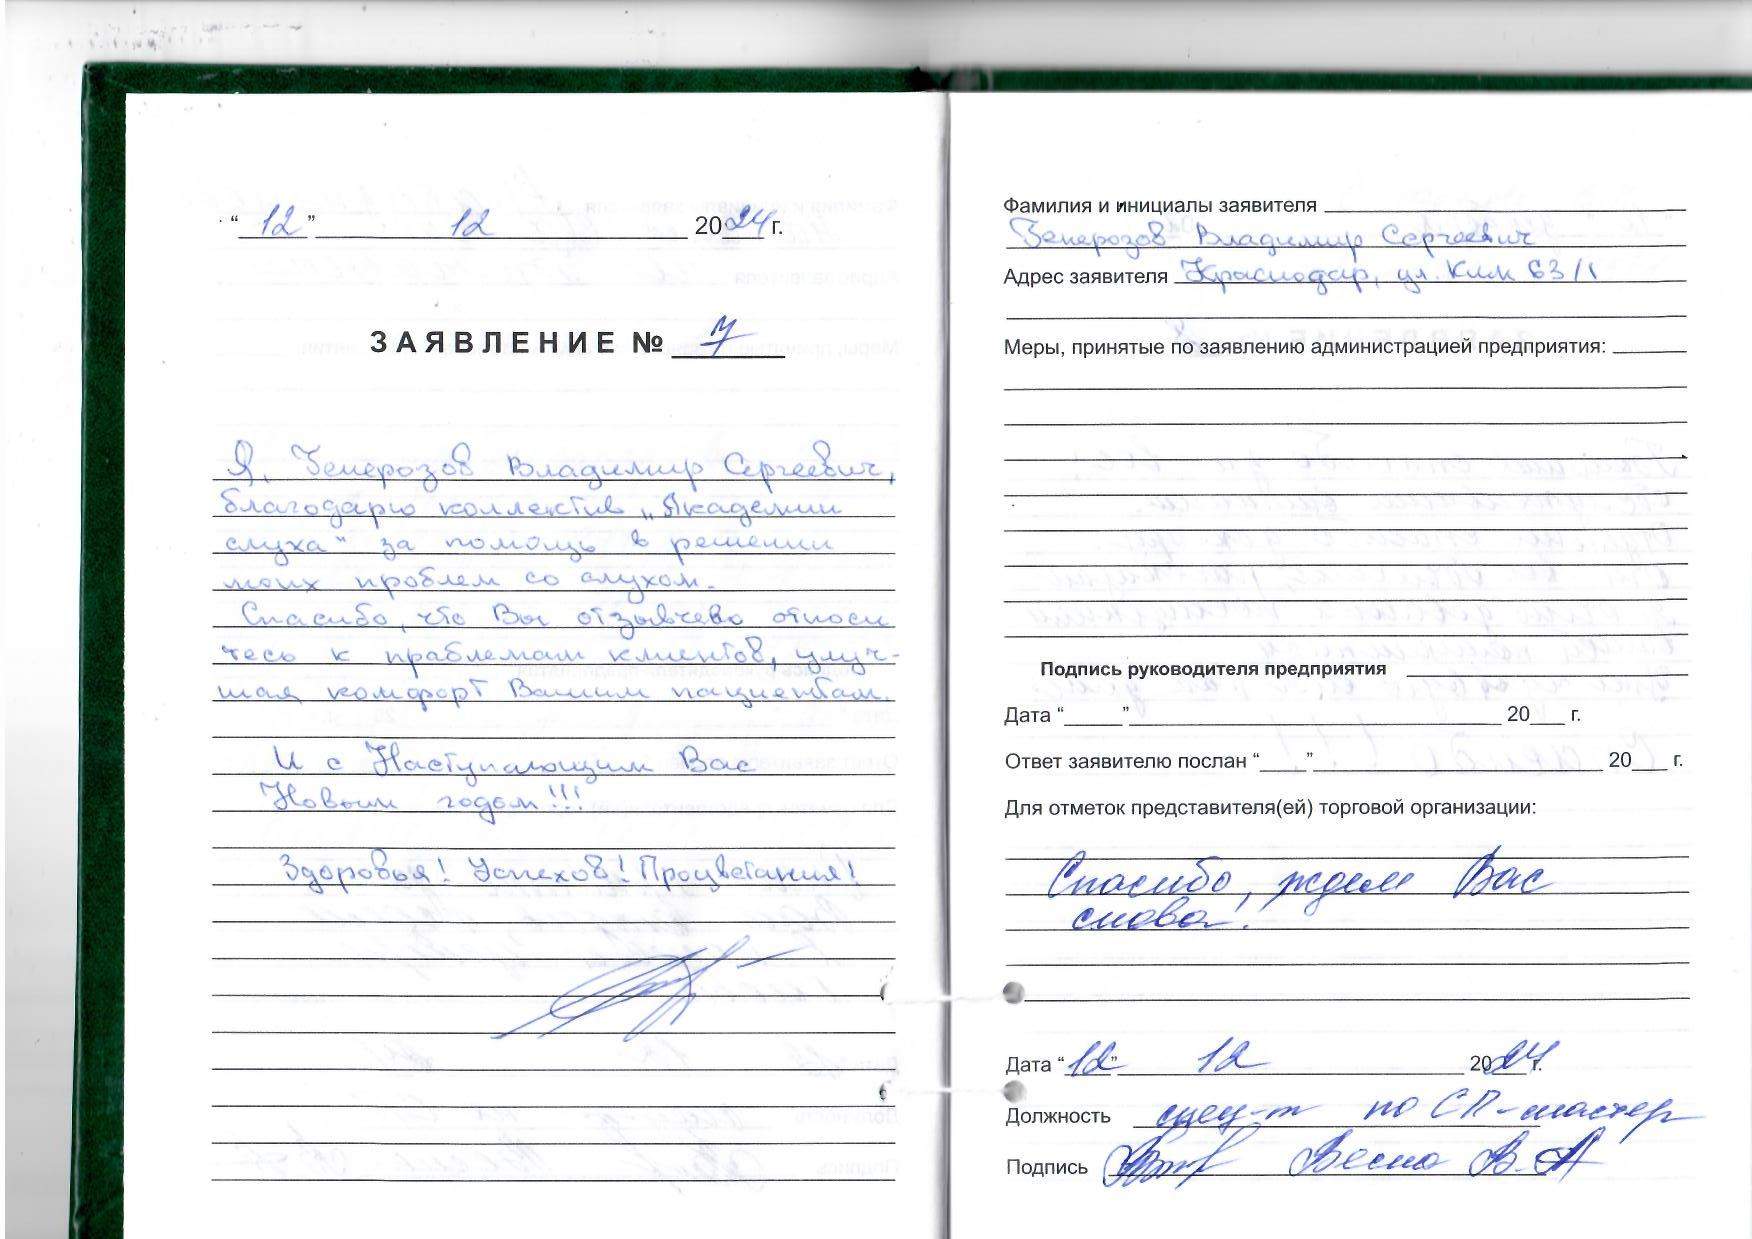 “12” 12 2024 г.
ЗАЯВЛЕНИЕ № 7
Я, Земерозов Владимир Сергеевич,
благодарю коллектив „Академии
слуха“ за помощь в решении
моих проблем со слухом.
Спасибо, что Вы отзывчево относи
тесь к праблемам клиентов, улуч-
шая комфорт Вашим пациентам.
И с Наступающим Вас
Новым годом!!!
Здоровья! Успехов! Процветания!
Фамилия и инициалы заявителя
Земерозов Владимир Сергеевич
Адрес заявителя Краснодар, ул. Ким 63/1
Меры, принятые по заявлению администрацией предприятия:
Подпись руководителя предприятия
Дата “ ” 20 г.
Ответ заявителю послан “ ” 20 г.
Для отметок представителя(ей) торговой организации:
Спасибо, ждем Вас
снова!
Дата “12” 12 2024 г.
Должность спец-т по СП-мастер
Подпись Весна В.А